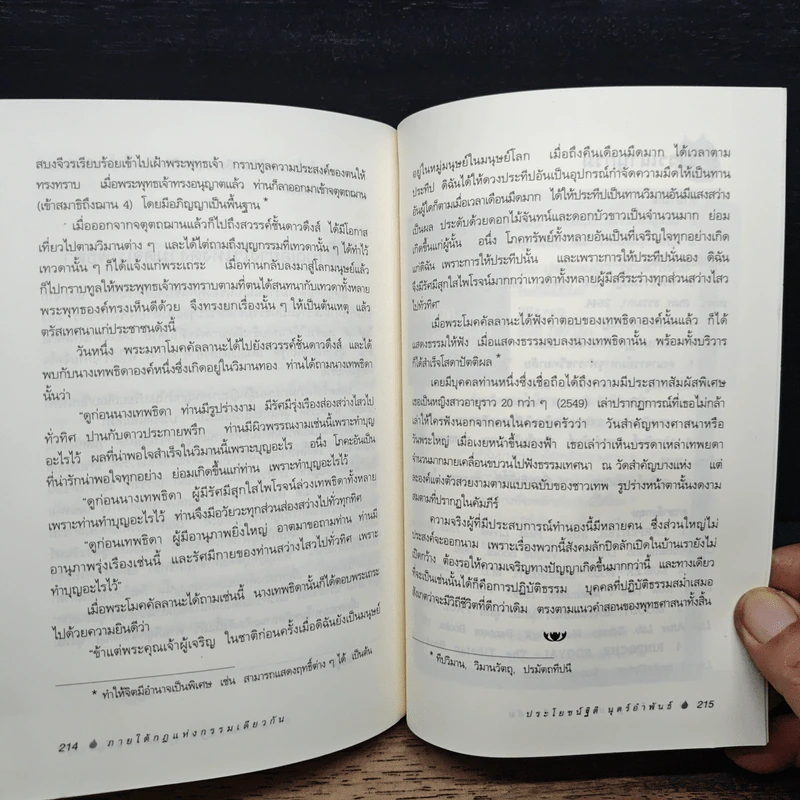 สบงจีวรเรียบร้อยเข้าไปเฝ้าพระพุทธเจ้า กราบทูลความประสงค์ของตนให้
ทรงทราบ เมื่อพระพุทธเจ้าทรงอนุญาตแล้ว ท่านก็ลาออกมาเข้าจตุตถฌาน
(เข้าสมาธิถึงฌาน 4) โดยมีอภิญญาเป็นพื้นฐาน *
เมื่อออกจากจตุตถฌานแล้วก็ไปถึงสวรรค์ชั้นดาวดึงส์ ได้มีโอกาส
เที่ยวไปตามวิมานต่าง ๆ และได้ไต่ถามถึงบุญกรรมที่เทวดานั้น ๆ ได้ทำไว้
เทวดานั้น ๆ ก็ได้แจ้งแก่พระเถระ เมื่อท่านกลับลงมาสู่โลกมนุษย์แล้ว
ก็ไปกราบทูลให้พระพุทธเจ้าทรงทราบตามที่ตนได้สนทนากับเทวดาทั้งหลาย
พระพุทธองค์ทรงเห็นดีด้วย จึงทรงยกเรื่องนั้น ๆ ให้เป็นต้นเหตุ แล้ว
ตรัสเทศนาแก่ประชาชนดังนี้
วันหนึ่ง พระมหาโมคคัลลานะได้ไปยังสวรรค์ชั้นดาวดึงส์ และได้
พบกับนางเทพธิดาองค์หนึ่งซึ่งเกิดอยู่ในวิมานทอง ท่านได้ถามนางเทพธิดา
นั้นว่า
"ดูก่อนนางเทพธิดา ท่านมีรูปร่างงาม มีรัศมีรุ่งเรืองส่องสว่างไสวไป
ทั่วทิศ ปานกับดาวประกายพรึก ท่านมีผิวพรรณงามเช่นนี้เพราะทำบุญ
อะไรไว้ ผลที่น่าพอใจสำเร็จในวิมานนี้เพราะบุญอะไร อนึ่ง โภคะอันเป็น
ที่น่ารักน่าพอใจทุกอย่าง ย่อมเกิดขึ้นแก่ท่าน เพราะทำบุญอะไรไว้
"ดูก่อนนางเทพธิดา ผู้มีรัศมีสุกใสไพโรจน์ล่วงเทพธิดาทั้งหลาย
เพราะท่านทำบุญอะไรไว้ ท่านจึงมีอวัยวะทุกส่วนส่องสว่างไปทั่วทุกทิศ
"ดูก่อนเทพธิดา ผู้มีอานุภาพยิ่งใหญ่ อาตมาขอถามท่าน ท่านมี
อานุภาพรุ่งเรืองเช่นนี้ และรัศมีกายของท่านสว่างไสวไปทั่วทิศ เพราะ
ทำบุญอะไรไว้"
เมื่อพระโมคคัลลานะได้ถามเช่นนี้ นางเทพธิดานั้นก็ได้ตอบพระเถระ
ไปด้วยความยินดีว่า
"ข้าแต่พระคุณเจ้าผู้เจริญ ในชาติก่อนครั้งเมื่อดิฉันยังเป็นมนุษย์
* ทำให้จิตมีอำนาจเป็นพิเศษ เช่น สามารถแสดงฤทธิ์ต่าง ๆ ได้ เป็นต้น
214 ภายใต้กฎแห่งกรรมเดียวกัน
อยู่ในหมู่มนุษย์ในมนุษย์โลก เมื่อถึงคืนเดือนมืดมาก ได้เวลาตาม
ประทีป ดิฉันได้ให้ดวงประทีปอันเป็นอุปกรณ์กำจัดความมืดให้เป็นทาน
อันผู้ใดก็ตามเมื่อเวลาเดือนมืดมาก ได้ให้ประทีปเป็นทานวิมานอันมีแสงสว่าง
เป็นผล ประดับด้วยดอกไม้จันทน์และดอกบัวขาวเป็นจำนวนมาก ย่อม
เกิดขึ้นแก่ผู้นั้น อนึ่ง โภคทรัพย์ทั้งหลายอันเป็นที่เจริญใจทุกอย่างเกิด
แก่ดิฉัน เพราะการให้ประทีปนั้น และเพราะการให้ประทีปนั่นเอง ดิฉัน
จึงมีรัศมีสุกใสไพโรจน์มากกว่าเทวดาทั้งหลายผู้มีสรีระร่างทุกส่วนสว่างไสว
ไปทั่วทิศ"
เมื่อพระโมคคัลลานะได้ฟังคำตอบของเทพธิดาองค์นั้นแล้ว ก็ได้
แสดงธรรมให้ฟัง เมื่อแสดงธรรมจบลงนางเทพธิดานั้น พร้อมทั้งบริวาร
ก็ได้สำเร็จโสดาปัตติผล *
เคยมีบุคคลท่านหนึ่งซึ่งเชื่อถือได้ถึงความมีประสาทสัมผัสพิเศษ
เธอเป็นหญิงสาวอายุราว 20 กว่า ๆ (2549) เล่าปรากฏการณ์ที่เธอไม่กล้า
เล่าให้ใครฟังนอกจากคนในครอบครัวว่า วันสำคัญทางศาสนาหรือ
วันพระใหญ่ เมื่อเงยหน้าขึ้นมองฟ้า เธอเล่าว่าเห็นบรรดาเหล่าเทพยดา
จำนวนมากมายเคลื่อนขบวนไปฟังธรรมเทศนา ณ วัดสำคัญบางแห่ง แต่
ละองค์แต่งตัวสวยงามตามแบบฉบับของชาวเทพ รูปร่างหน้าตานั้นงดงาม
สมตามที่ปรากฏในคัมภีร์
ความจริงผู้ที่มีประสบการณ์ทำนองนี้มีหลายคน ซึ่งส่วนใหญ่ไม่
ประสงค์จะออกนาม เพราะเรื่องพวกนี้สังคมลักปิดลักเปิดในบ้านเรายังไม่
เปิดกว้าง ต้องรอให้ความเจริญทางปัญญาเกิดขึ้นมากกว่านี้ และทางเดียว
ที่จะเป็นเช่นนั้นได้ก็คือการปฏิบัติธรรม บุคคลที่ปฏิบัติธรรมสม่ำเสมอ
สังเกตว่าจะมีวิถีชีวิตที่ดีกว่าเดิม ตรงตามแนวคำสอนของพุทธศาสนาทั้งสิ้น
* ทีปวิมาน, วิมานวัตถุ, ปรมัตถทีปนี
ประโยชน์ฐิติ บุตร์อำพันธ์ 215